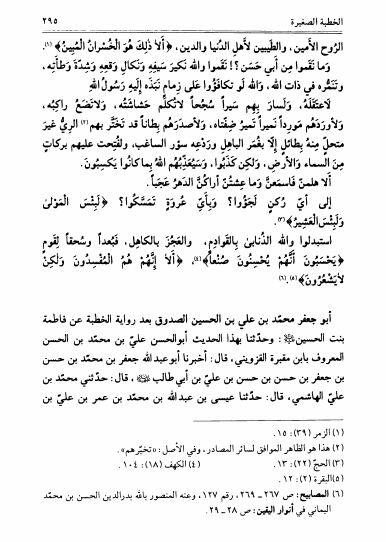 الخطبة الصغيرة ٢٩٥
الرُّوح الأَمين، والطَّيبين لأهلِ الدُّنيا والدين، ﴿أَلاَ ذَلِكَ هُوَ الْخُسْرانُ الْمُبِينُ﴾(١).
وَما نَقَموا مِن أبي حَسَن؟! نَقَموا واللهِ نَكيرَ سَيفِهِ ونَكالَ وَقعِهِ وشِدَّةَ وَطأَتِه،
وتَنَمُّره في ذات الله، والله لو تكافَؤُوا عَلى زِمامٍ نَبَذَه إلَيهِ رَسُولُ اللهِ
لاعتَقَلَهُ، ولَسارَ بِهِم سَيراً سُجُحاً لاتُكلَّم حَشاشَتُه، ولاتَضَعُ راكِبه،
ولأورَدَهُم مَورِداً نَميراً تَميرُ ضِفَتاه، ولأصدَرَهُم بِطاناً قد تَخَثَّر بهم(٢) الرِيُّ غيرَ
متحلٍّ مِنهُ بِطائلٍ إلّا بغُمَر الباهِل وَرَدْعِهِ سَوْر الساغِب، ولفُتِحت عليهم بركاتٍ
من السماءِ والأرضِ، ولكن كَذَبوا، وسيُعَذِّبُهم اللهُ بِما كانُوا يَكسِبُونَ.
ألا هلمنّ فاسمَعنَّ وما عِشتُنّ أراكُنَّ الدَهرُ عَجَباً.
إلى أيِّ رُكنٍ لَجَؤُوا؟ وبِأيِّ عُروةٍ تَمَسَّكوا؟ ﴿لَبِئْسَ الْمَوْلىٰ
وَلَبِئْسَ الْعَشِيرُ﴾(٣).
استبدلوا والله الذُنابىٰ بِالقَوادِم، والعَجُزَ بالكاهِل، فَبُعداً وسُحقاً لِقَوم
﴿يَحْسَبُونَ أَنَّهُمْ يُحْسِنُونَ صُنْعاً﴾(٤)، ﴿أَلاَ إِنَّهُمْ هُمُ الْمُفْسِدُونَ وَلٰكِنْ
لاَيَشْعُرُونَ﴾(٥).(٦)
أبو جعفر محمد بن علي بن الحسين الصدوق بعد رواية الخطبة عن فاطمة
بنت الحسين: وحدّثنا بهذا الحديث أبوالحسن علي بن محمد بن الحسن
المعروف بابن مقبرة القزويني، قال: أخبرنا أبوعبدالله جعفر بن محمد بن حسن
بن جعفر بن حسن بن حسن بن عليّ بن أبي طالب، قال: حدّثني محمد بن
عليّ الهاشمي، قال: حدّثنا عيسى بن عبدالله بن محمد بن عمر بن عليّ بن
(١) الزمر (٣٩): ١٥.
(٢) هذا هو الظاهر الموافق لسائر المصادر، وفي الأصل: «تخيّرهم».
(٣) الحجّ (٢٢): ١٣. (٤) الكهف (١٨): ١٠٤.
(٥) البقرة (٢): ١٢.
(٦) المصابيح: ص ٢٦٧ـ٢٦٩، رقم ١٢٧، وعنه المنصور بالله بدرالدين الحسن بن محمد
اليماني في أنوار اليقين: ص ٢٨ـ٢٩.